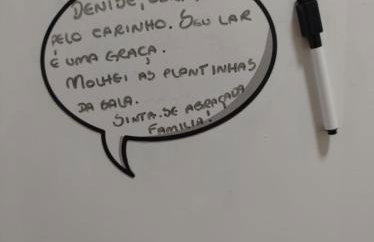 DENISE,
PELO CARINHO. SEU LAR
É UMA GRAÇA.
MOLHEI AS PLANTINHAS
DA SALA.
SINTA-SE ABRAÇADA
FAMILIA!